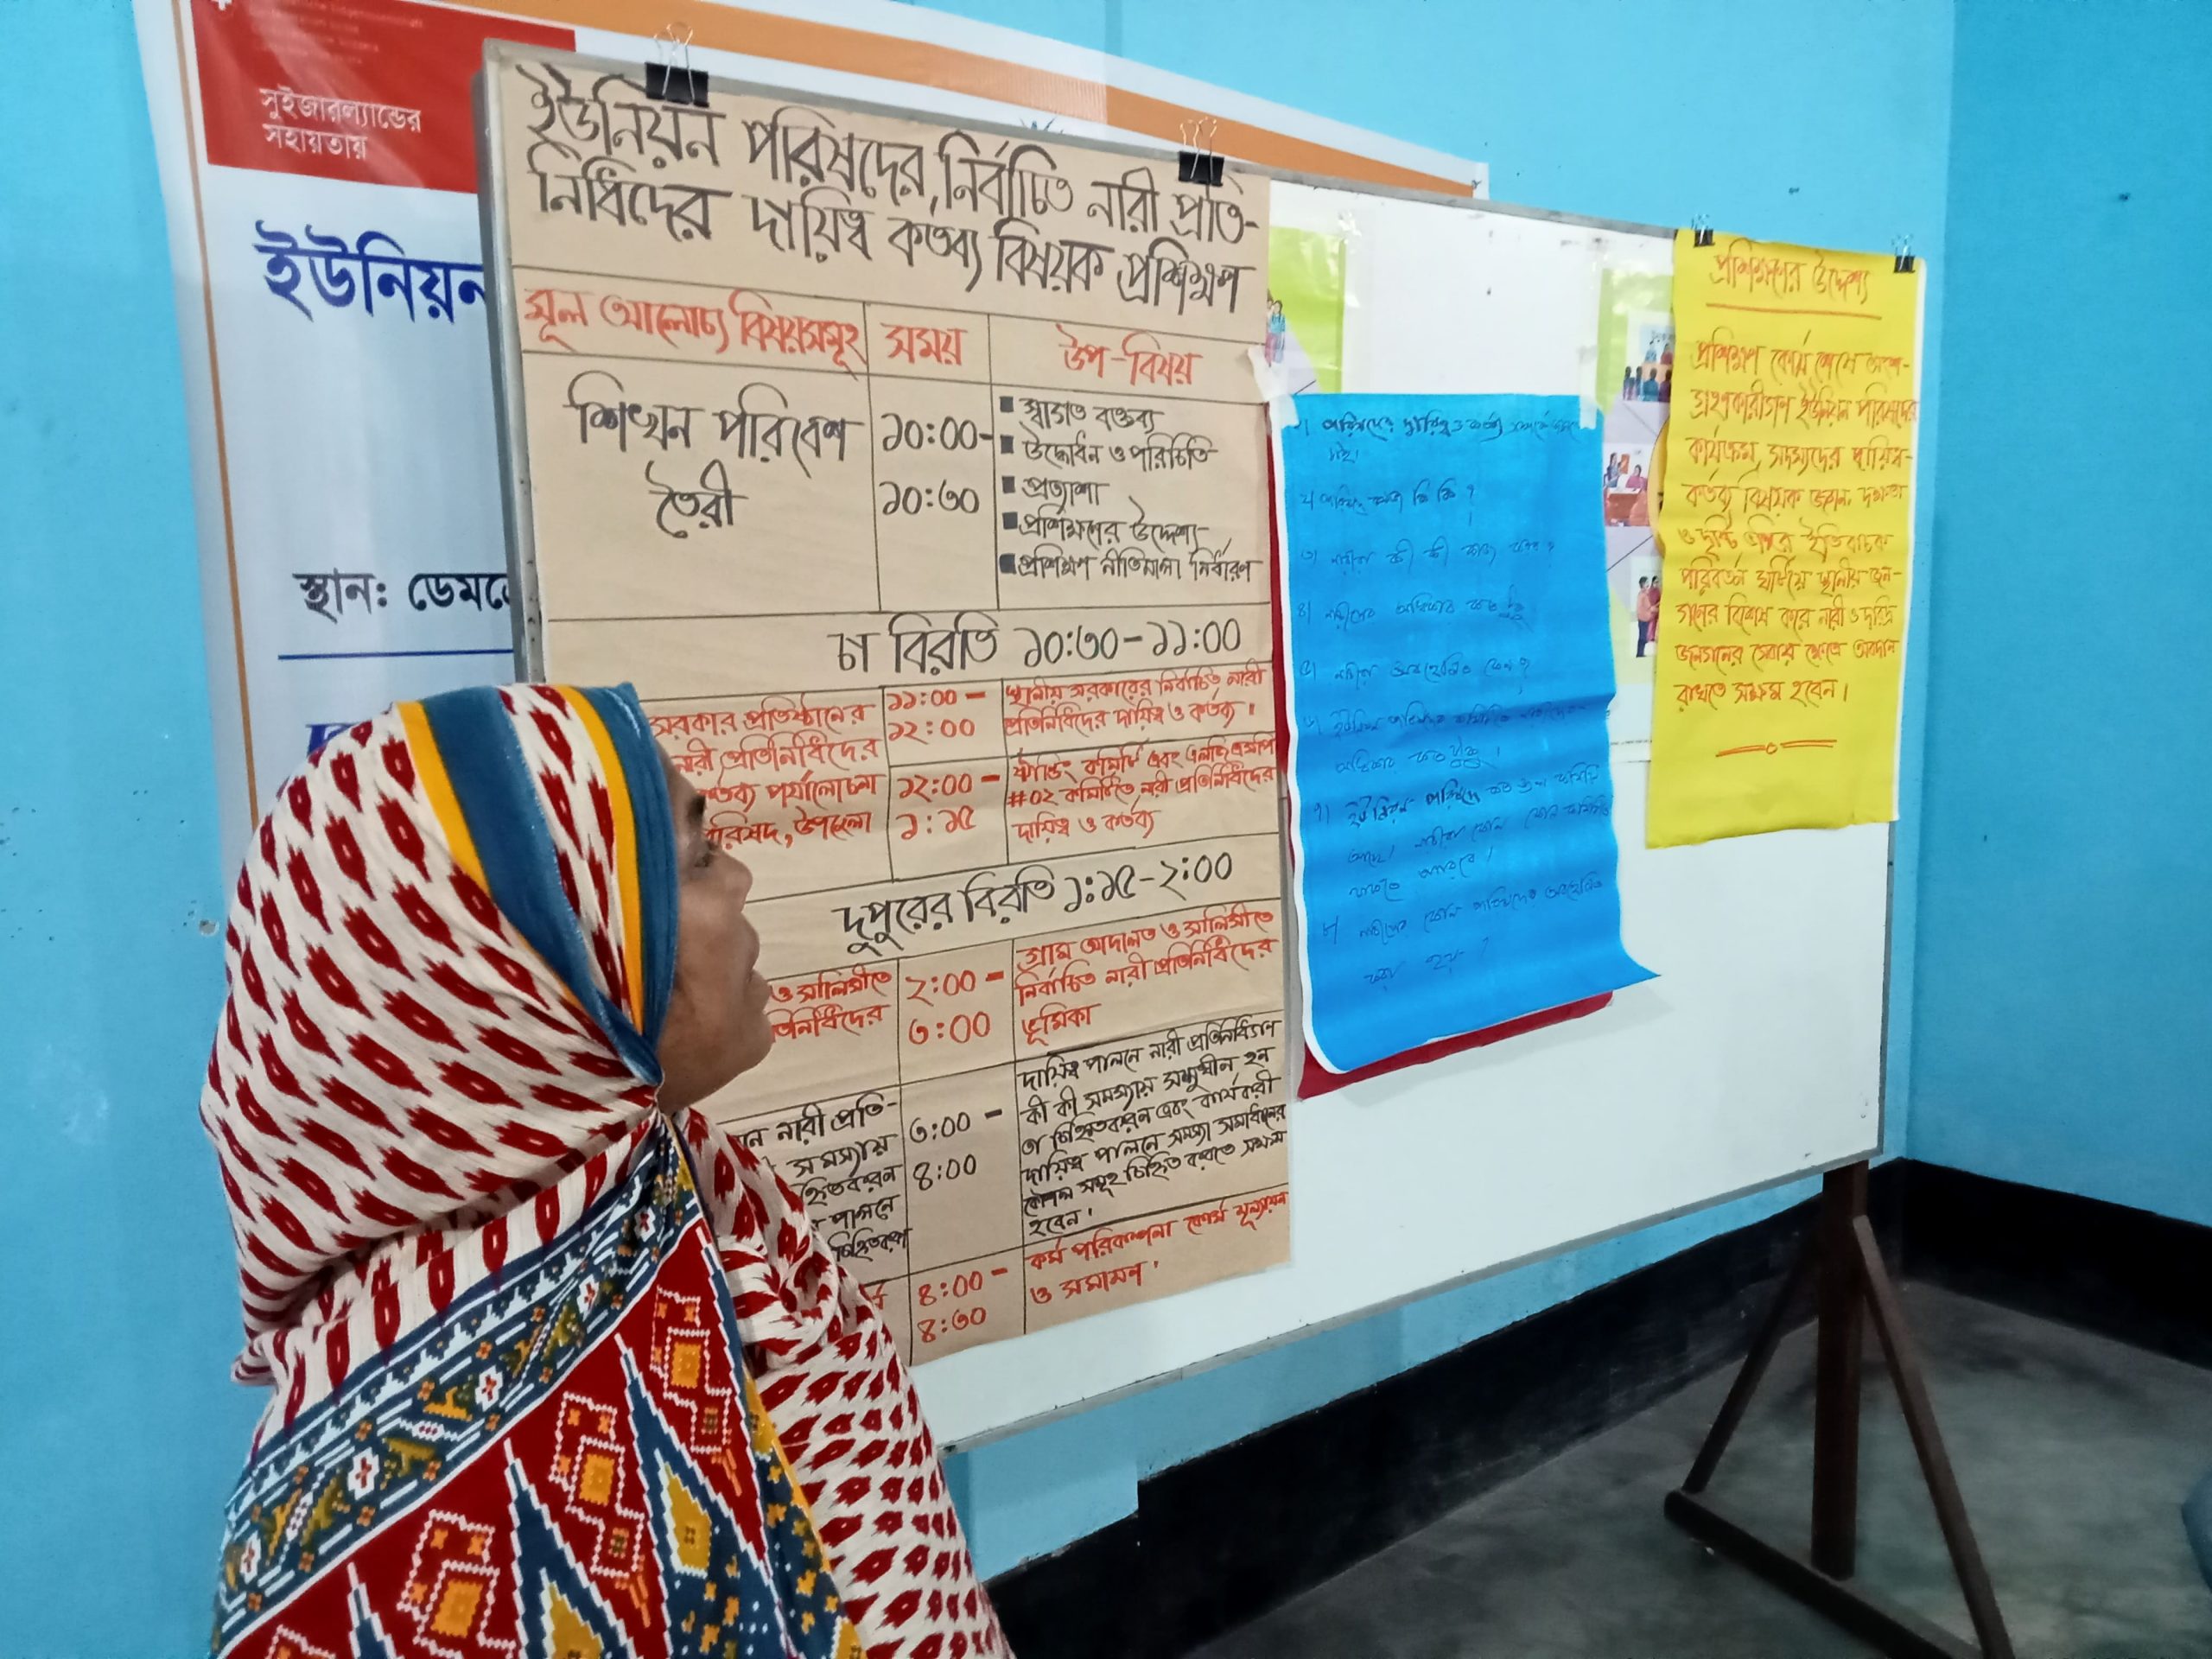 সুইজারল্যান্ডের
সহায়তায়
ইউনিয়ন
স্থান: ডেমক্রে
ইউনিয়ন পরিষদের নির্বাচিত নারী প্রতি-
নিধিদের দায়িত্ব কর্তব্য বিষয়ক প্রশিক্ষণ
মূল আলোচ্য বিষয়সমূহ
সময়
উপ-বিষয়
শিখন পরিবেশ
তৈরী
১০:০০-
১০:৩০
স্বাগত বক্তব্য
উদ্ধোধন ও পরিচিতি
প্রত্যাশা
প্রশিক্ষণের উদ্দেশ্য
প্রশিক্ষণ নীতিমালা নির্ধারণ
চা বিরতি ১০:৩০-১১:০০
সরকার প্রতিষ্ঠানের
নারী প্রতিনিধিদের
র্তব্য পর্যালোচনা
রিষদ, উপজেলা
১১:০০ -
১২:০০
স্থানীয় সরকারের নির্বাচিত নারী
প্রতিনিধিদের দায়িত্ব ও কর্তব্য।
১২:০০ -
১:১৫
ষ্ট্যান্ডিং কমিটি এবং এলজিএসপি
#০২ কমিটিতে নারী প্রতিনিধিদের
দায়িত্ব ও কর্তব্য
দুপুরের বিরতি ১:১৫-২:০০
ও সালিসীতে
তিনিধিদের
২:০০ -
৩:০০
গ্রাম আদালত ও সালিসীতে
নির্বাচিত নারী প্রতিনিধিদের
ভূমিকা
নে নারী প্রতি-
সমস্যায়
হ্নিতকরন
পালনে
চিহ্নিতকরণ
৩:০০ -
৪:০০
দায়িত্ব পালনে নারী প্রতিনিধিগণ
কী কী সমস্যায় সম্মুখীন হন
তা চিহ্নিতকরন এবং কার্যকরী
দায়িত্ব পালনে সমস্যা সমাধানের
কৌশল সমূহ চিহ্নিত করতে সক্ষম
হবেন।
৪:০০ -
৪:৩০
কর্ম পরিকল্পনা কোর্স মূল্যায়ন
ও সমাপন।
১। পরিষদের দায়িত্ব ও কর্তব্য সম্পর্কে
চাই।
২। কি কি ?
৩। নারীরা কী কী কাজ করে ?
৪। নারীদের অধিকার কত টুকু
৫। নারীরা অবহেলিত কেন ?
৬। ইউনিয়ন পরিষদে
অধিকার কত টুকু।
৭। ইউনিয়ন পরিষদে কত গুলা কমিটি
আছে। নারীরা কোন কোন কমিটিতে
থাকতে পারবে।
৮। নারীদের কেন পরিষদে অবহেলিত
করা হয় ?
প্রশিক্ষণের উদ্দেশ্য
প্রশিক্ষণ কোর্স শেষে অংশ-
গ্রহণকারীগণ ইউনিয়ন পরিষদের
কার্যক্রম, সদস্যদের দায়িত্ব-
কর্তব্য বিষয়ক জ্ঞান, দক্ষতা
ও দৃষ্টি ভঙ্গির ইতিবাচক
পরিবর্তন ঘটিয়ে স্থানীয় জন-
গনের বিশেষ করে নারী ও দরিদ্র
জনগনের সেবার ক্ষেত্রে অবদান
রাখতে সক্ষম হবেন।